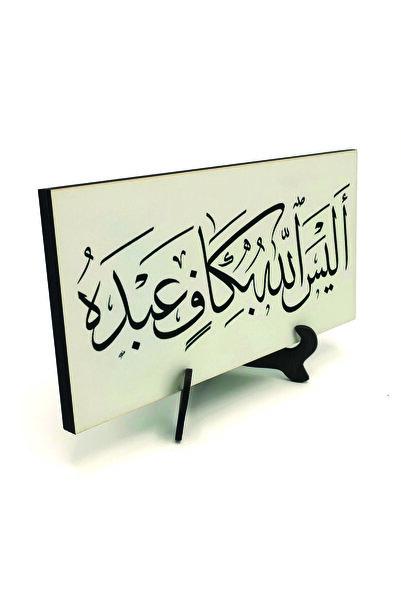 أَلَيْسَ اللّٰهُ بِكَافٍ عَبْدَهُ